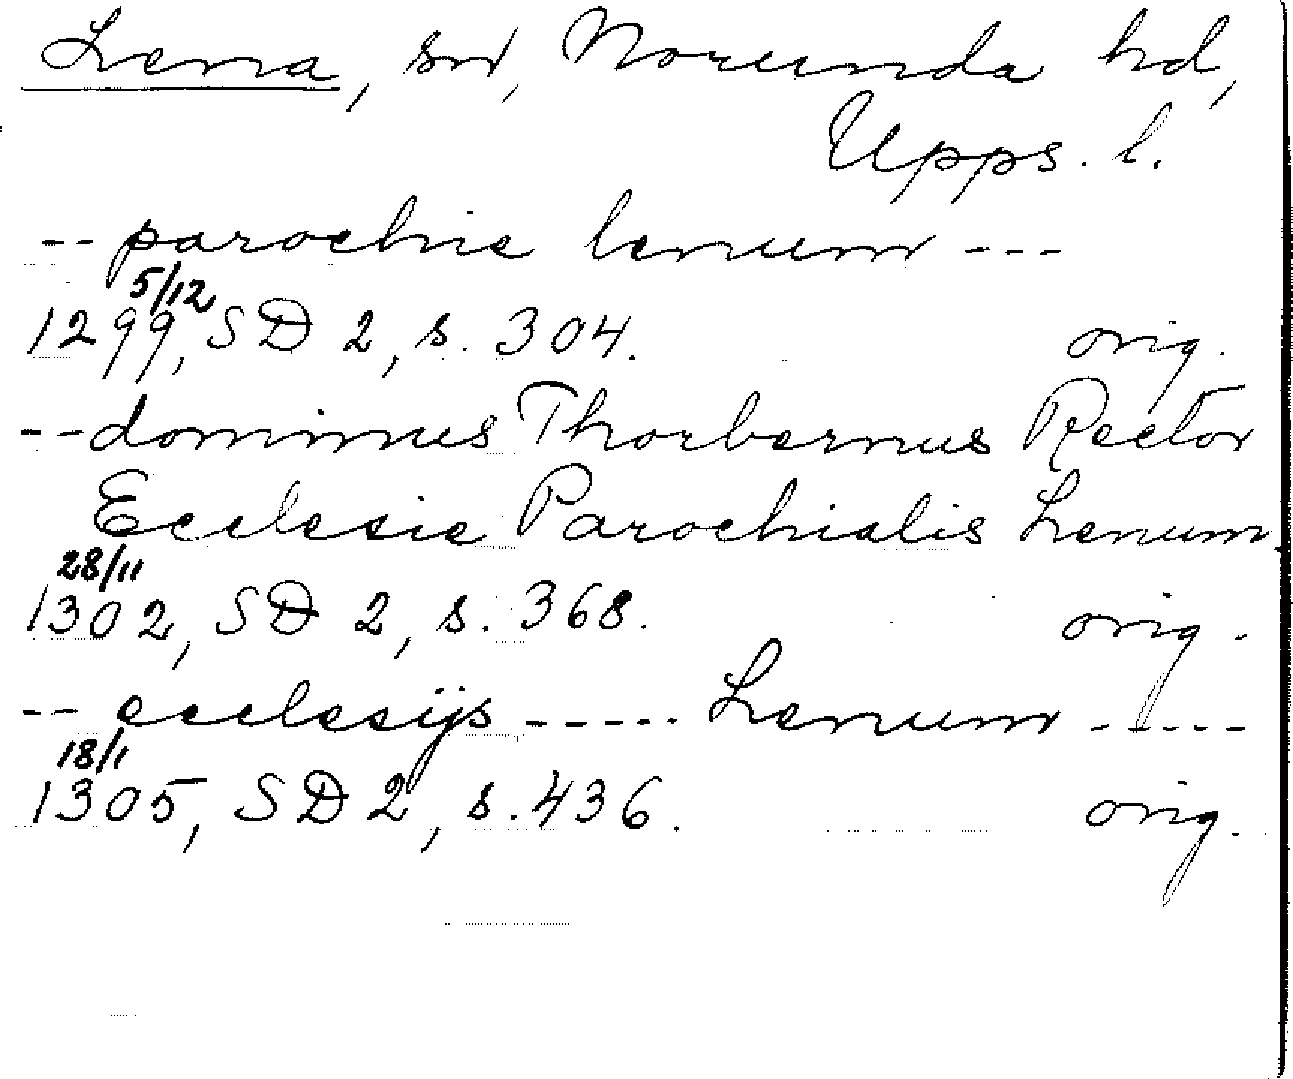 Lena, sn, Norunda hd,
Upps. l.
-- parochie lenum ---
5/12
1299, SD 2, s. 304. orig.
-- dominus Thorbernus Rector
Ecclesie Parochialis Lenum
28/11
1302, SD 2, s. 368. orig.
-- ecclesijs ----- Lenum -----
18/1
1305, SD 2, s. 436. orig.